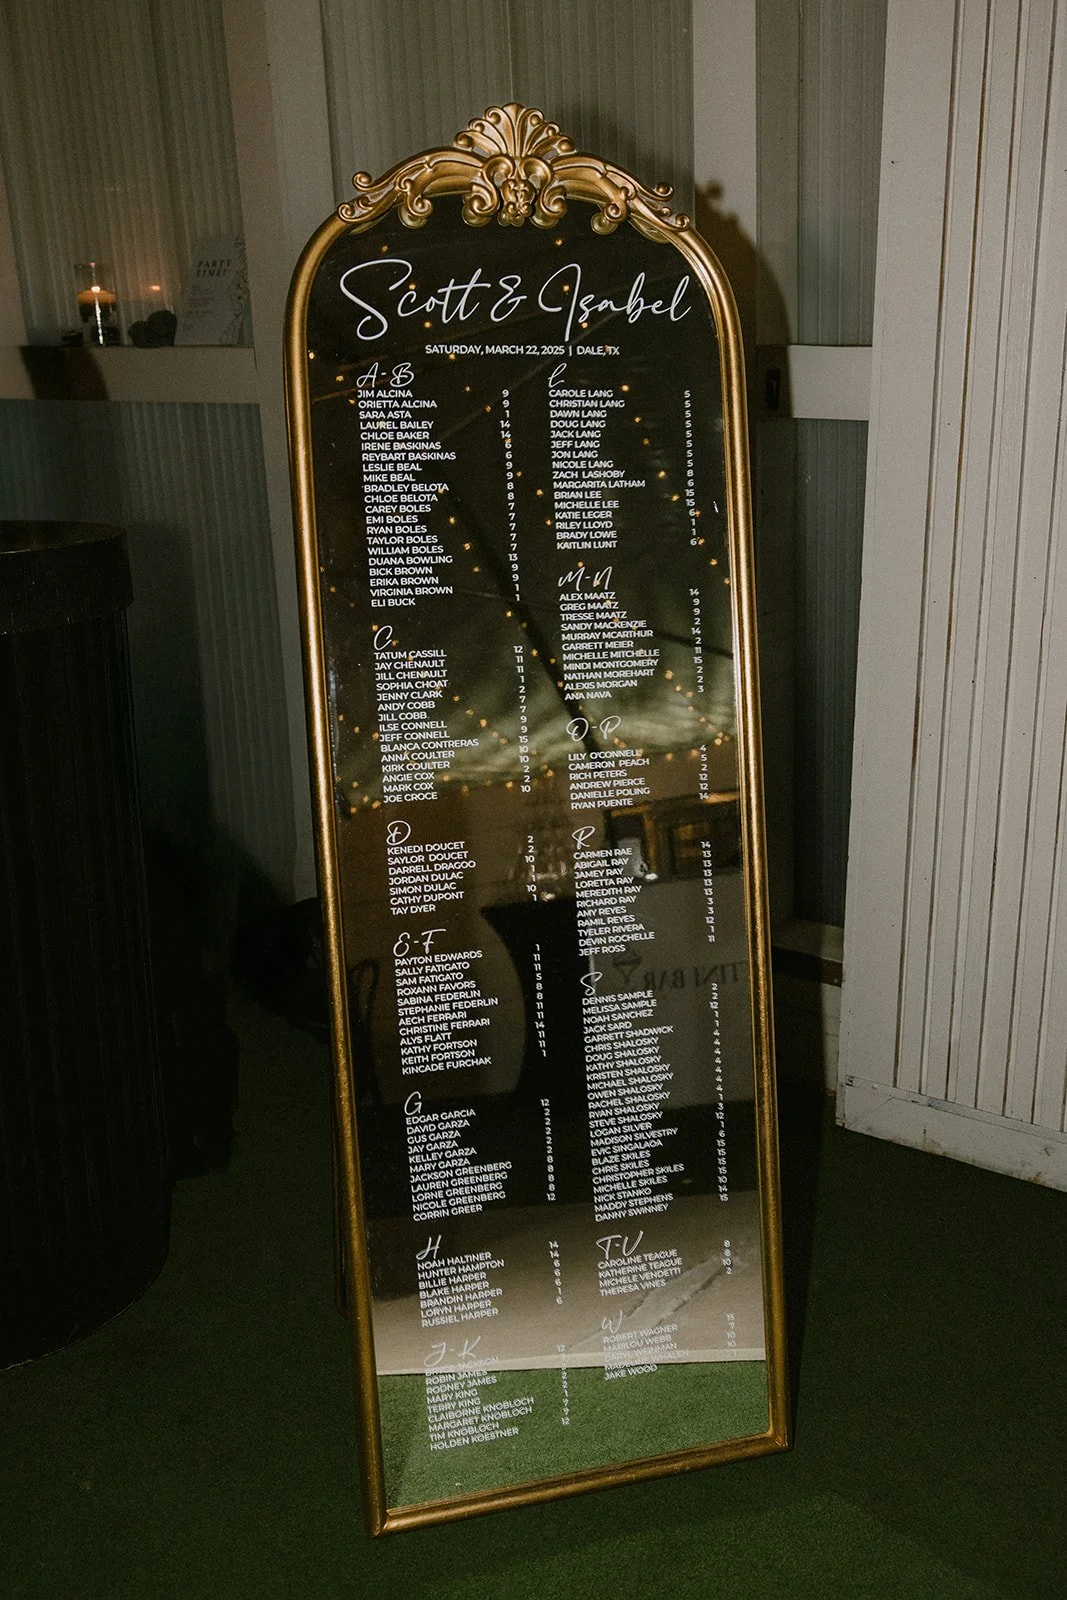 PARTY TIME!
Scott & Isabel
SATURDAY, MARCH 22, 2025 | DALE, TX
A-B
JIM ALCINA 9
ORIETTA ALCINA 9
SARA ASTA 1
LAUREL BAILEY 14
CHLOE BAKER 14
IRENE BASKINAS 6
REYBART BASKINAS 6
LESLIE BEAL 9
MIKE BEAL 9
BRADLEY BELOTA 8
CHLOE BELOTA 8
CAREY BOLES 7
EMI BOLES 7
RYAN BOLES 7
TAYLOR BOLES 7
WILLIAM BOLES 7
DUANA BOWLING 13
BICK BROWN 9
ERIKA BROWN 9
VIRGINIA BROWN 1
ELI BUCK 1
C
TATUM CASSILL 12
JAY CHENAULT 11
JILL CHENAULT 11
SOPHIA CHOAT 1
JENNY CLARK 2
ANDY COBB 7
JILL COBB 7
ILSE CONNELL 9
JEFF CONNELL 9
BLANCA CONTRERAS 15
ANNA COULTER 10
KIRK COULTER 10
ANGIE COX 2
MARK COX 2
JOE CROCE 10
D
KENEDI DOUCET 2
SAYLOR DOUCET 2
DARRELL DRAGOO 10
JORDAN DULAC 1
SIMON DULAC 1
CATHY DUPONT 10
TAY DYER 1
E-F
PAYTON EDWARDS 1
SALLY FATIGATO 11
SAM FATIGATO 11
ROXANN FAVORS 5
SABINA FEDERLIN 8
STEPHANIE FEDERLIN 8
AECH FERRARI 11
CHRISTINE FERRARI 11
ALYS FLATT 14
KATHY FORTSON 11
KEITH FORTSON 11
KINCADE FURCHAK 1
G
EDGAR GARCIA 12
DAVID GARZA 2
GUS GARZA 2
JAY GARZA 2
KELLEY GARZA 2
MARY GARZA 2
JACKSON GREENBERG 8
LAUREN GREENBERG 8
LORNE GREENBERG 8
NICOLE GREENBERG 8
CORRIN GREER 12
H
NOAH HALTINER 14
HUNTER HAMPTON 14
BILLIE HARPER 6
BLAKE HARPER 6
BRANDIN HARPER 6
LORYN HARPER 1
RUSSIEL HARPER 6
J-K
JACKSON 12
ROBIN JAMES
RODNEY JAMES 2
MARY KING 2
TERRY KING 2
CLAIBORNE KNOBLOCH 1
MARGARET KNOBLOCH 7
TIM KNOBLOCH 7
HOLDEN KOESTNER 12
L
CAROLE LANG 5
CHRISTIAN LANG 5
DAWN LANG 5
DOUG LANG 5
JACK LANG 5
JEFF LANG 5
JON LANG 5
NICOLE LANG 5
ZACH LASHOBY 8
MARGARITA LATHAM 6
BRIAN LEE 15
MICHELLE LEE 15
KATIE LEGER 6
RILEY LLOYD 1
BRADY LOWE 1
KAITLIN LUNT 6
M-N
ALEX MAATZ 14
GREG MAATZ 9
TRESSE MAATZ 9
SANDY MACKENZIE 2
MURRAY MCARTHUR 14
GARRETT MEIER 2
MICHELLE MITCHELLE 11
MINDI MONTGOMERY 15
NATHAN MOREHART 2
ALEXIS MORGAN 2
ANA NAVA 3
O-P
LILY O'CONNELL 4
CAMERON PEACH 5
RICH PETERS 2
ANDREW PIERCE 12
DANIELLE POLING 12
RYAN PUENTE 14
R
CARMEN RAE 14
ABIGAIL RAY 13
JAMEY RAY 13
LORETTA RAY 13
MEREDITH RAY 13
RICHARD RAY 13
AMY REYES 3
RAMIL REYES 3
TYELER RIVERA 12
DEVIN ROCHELLE 1
JEFF ROSS 11
S
DENNIS SAMPLE 2
MELISSA SAMPLE 2
NOAH SANCHEZ 12
JACK SARD 1
GARRETT SHADWICK 1
CHRIS SHALOSKY 4
DOUG SHALOSKY 4
KATHY SHALOSKY 4
KRISTEN SHALOSKY 4
MICHAEL SHALOSKY 4
OWEN SHALOSKY 4
RACHEL SHALOSKY 4
RYAN SHALOSKY 1
STEVE SHALOSKY 3
LOGAN SILVER 12
MADISON SILVESTRY 1
EVIC SINGALADA 6
BLAZE SKILES 15
CHRIS SKILES 15
CHRISTOPHER SKILES 15
MICHELLE SKILES 15
NICK STANKO 10
MADDY STEPHENS 14
DANNY SWINNEY 15
T-U
CAROLINE TEAGUE 8
KATHERINE TEAGUE 8
MICHELE VENDETTI 10
THERESA VINES 2
W
ROBERT WAGNER 15
MARILOU WEBB 7
WEINMAN 10
10
JAKE WOOD